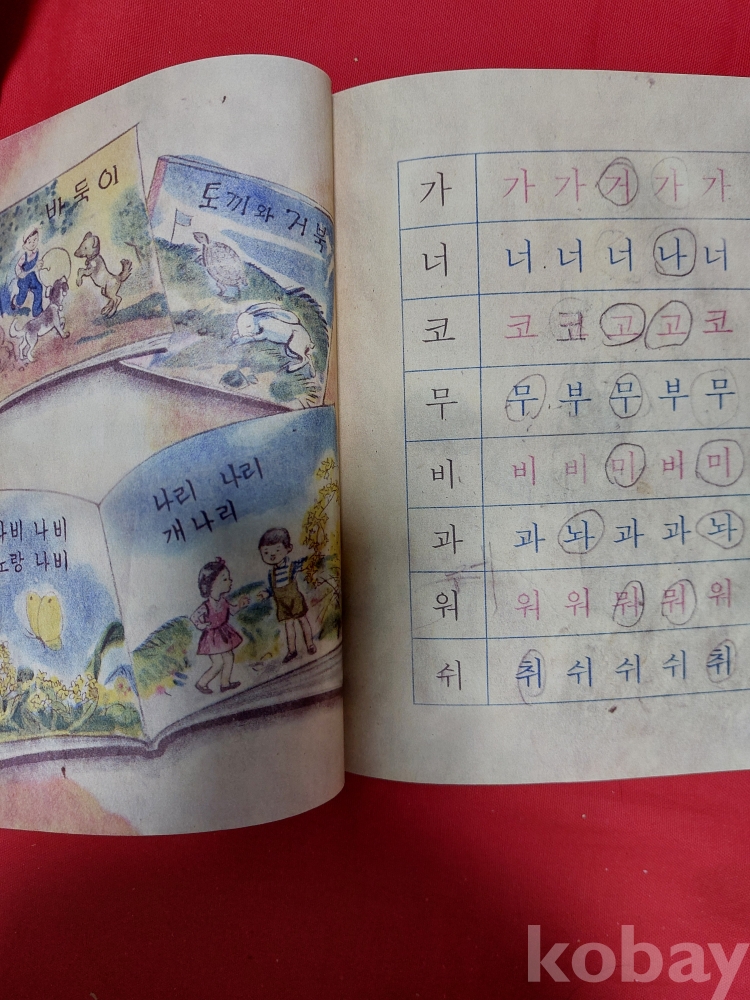 바둑이
토끼와 거북
나비 나비
노랑 나비
나리 나리
개나리
가 가 가 거 가 가
너 너 너 너 나 너
코 코 코 고 고 코
무 무 부 무 부 무
비 비 비 미 버 미
과 과 놔 과 과 놔
워 워 워 뭐 뭐 워
쉬 취 쉬 쉬 쉬 취
kobay